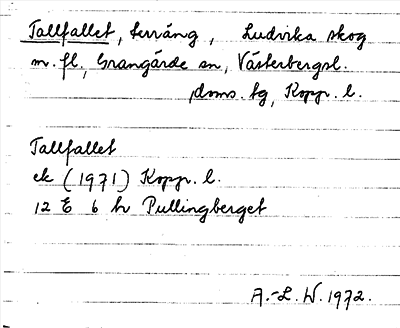 Tallfallet, terräng, Ludvika skog
m. fl., Grangärde sn, Västerbergsl.
doms. tg, Kopp. l.
Tallfallet
ek (1971) Kopp. l.
12 E 6 h Pullingberget
A.-L. W. 1972.